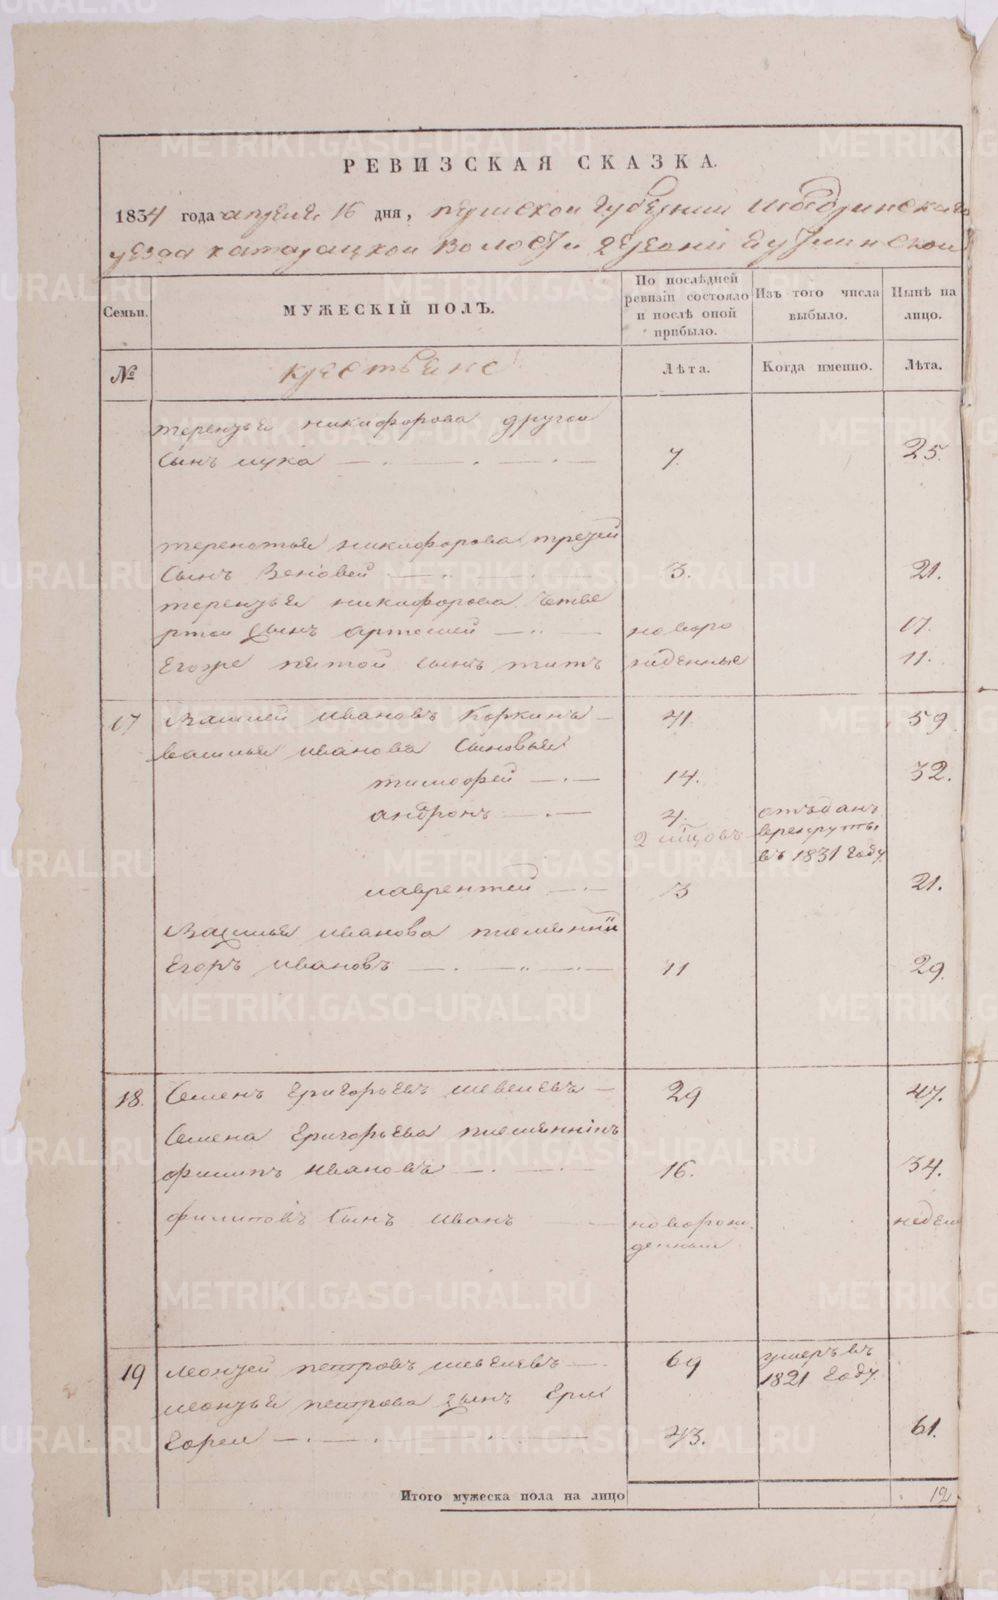 РЕВИЗСКАЯ СКАЗКА.
1834 года апреля 16 дня, пермской губернии Шадринскаго
уезда катайцкой волости деревни
Семьи. МУЖЕСКІЙ ПОЛЪ. По послѣдней ревизіи состояло и послѣ оной прибыло. Изъ того числа выбыло. Нынѣ на лицо.
№ крестьяне Лѣта. Когда именно. Лѣта.
никифорова другой
Сынъ лука 7. 25.
никифорова третей
Сынъ Зеновей 3. 21.
никифорова четве
ртой сынъ артемей новоро 17.
Егоже пятой сынъ титъ жденные 11.
17 Василей Ивановъ Коркинъ 41. 59
василья иванова Сыновья
тимофей 14. 32.
андронъ 4. отъданъ
2 врекруты
въ 1831 году.
лаврентей 3 21.
Василья иванова племянній
Егоръ ивановъ 11 29.
18. Семенъ Григорьевъ шевелевъ 29 47.
Семена Григорьева племянникъ
филипъ ивановъ 16. 34.
филиповъ Сынъ иванъ новорож. недел
денный
19 петровъ шевелевъ 69 умеръ въ
1821 году.
петрова сынъ Гри
горей 43. 61.
Итого мужеска пола на лицо 12
METRIKI.GASO-URAL.RU